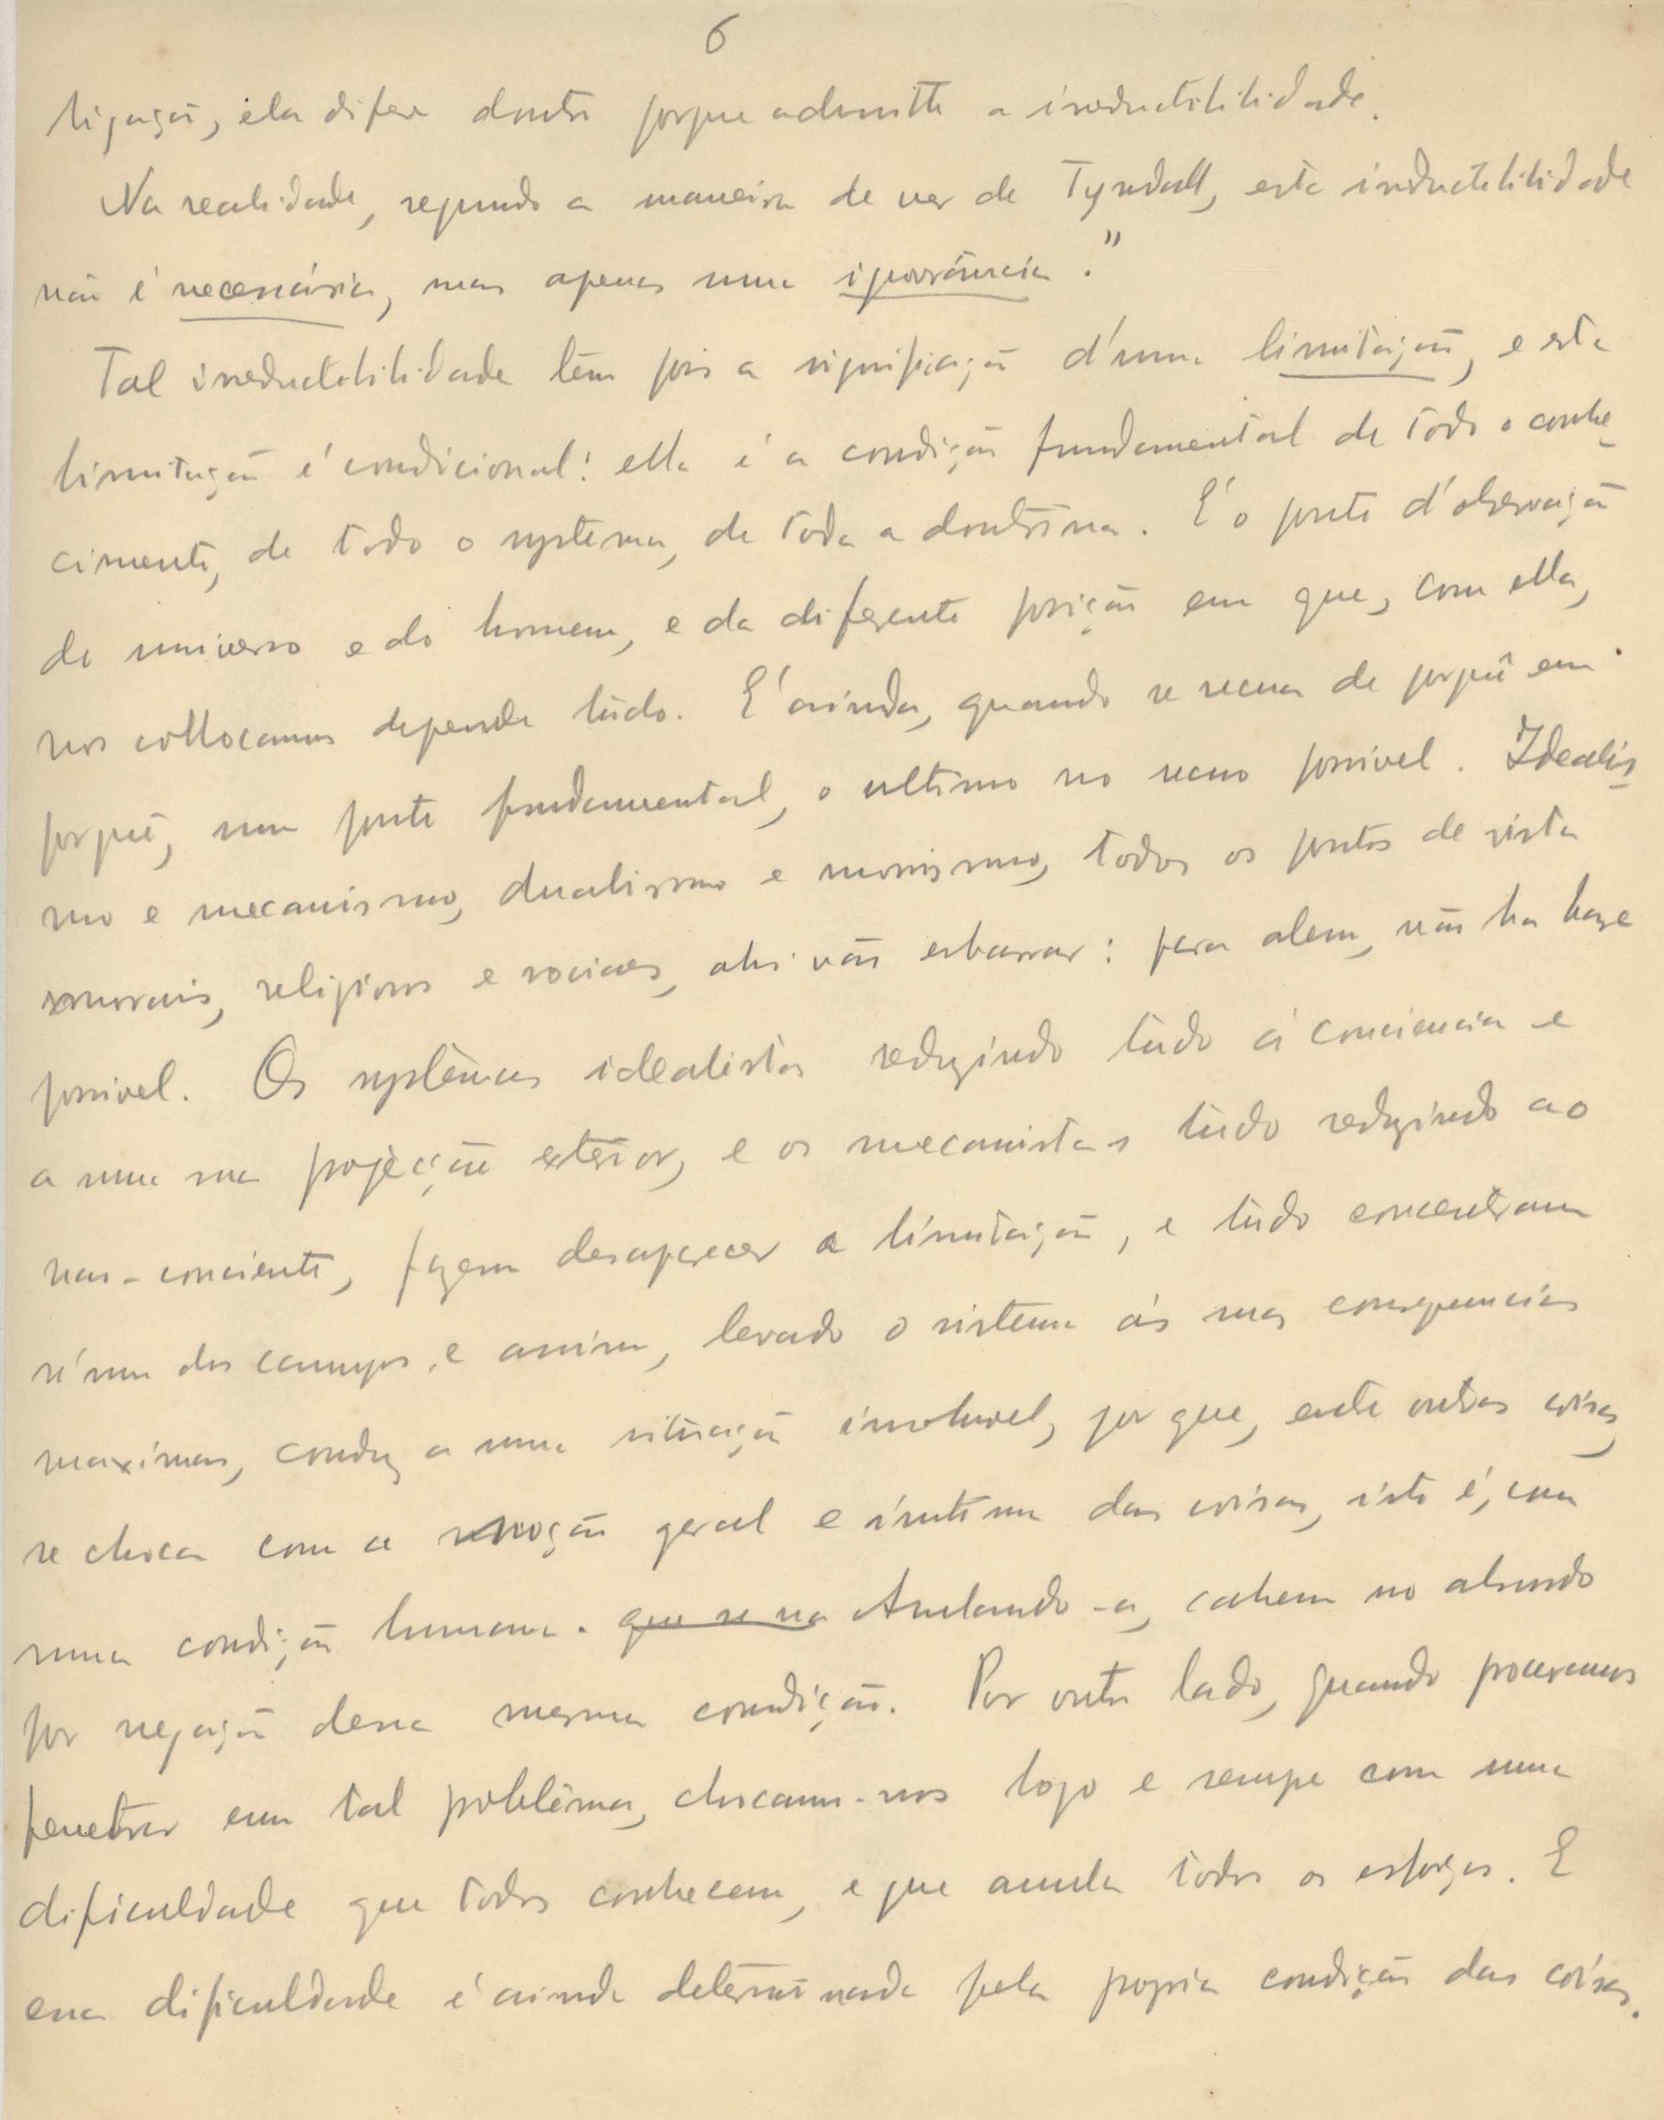 6
ligação, ela difere doutra porque admitte a ireductibilidade.
Na realidade, segundo a maneira de ver de Tyndall, esta ireductibilidade
não é necessária, mas apenas uma ignorância."
Tal ireductibilidade tem pois a significação d'uma limitação, e esta
limitação é condicional: ella é a condição fundamental de todo o conhe
cimento, de todo o systema, de toda a doutrina. É o ponto d'observação
do universo e do homem, e da diferente posição em que, com ella,
nos collocamos depende túdo. É ainda, quando se recua de porquê em
porquê, um ponto fundamental, o ultimo no recuo possivel. Idealis
mo e mecanismo, dualismo e monismo, todos os pontos de vista
morais, religiosos e sociaes, ahi vão esbarrar: para alem, não ha base
possivel. Os systêmas idealistas reduzindo túdo á conciencia e
a uma sua projècção exterior, e os mecanistas túdo reduzindo ao
nao-conciente, fazem desaparecer a limitação, e túdo concentram
n'um dos campos, e assim, levado o sistema ás suas consequencias
maximas, conduz a uma situação insoluvel, por que, entre outras coisas,
se choca com a noção geral e íntima das coisas, isto é, com
uma condição humana. que se na Anulando-a, cahem no absurdo
por negação dessa mesma condição. Por outro lado, quando procuramos
penetrar em tal problêma, chocamo-nos logo e sempre com uma
dificuldade que todos conhecem, e que anula todos os esforços. E
essa dificuldade é ainda determinada pela propria condição das coisas.